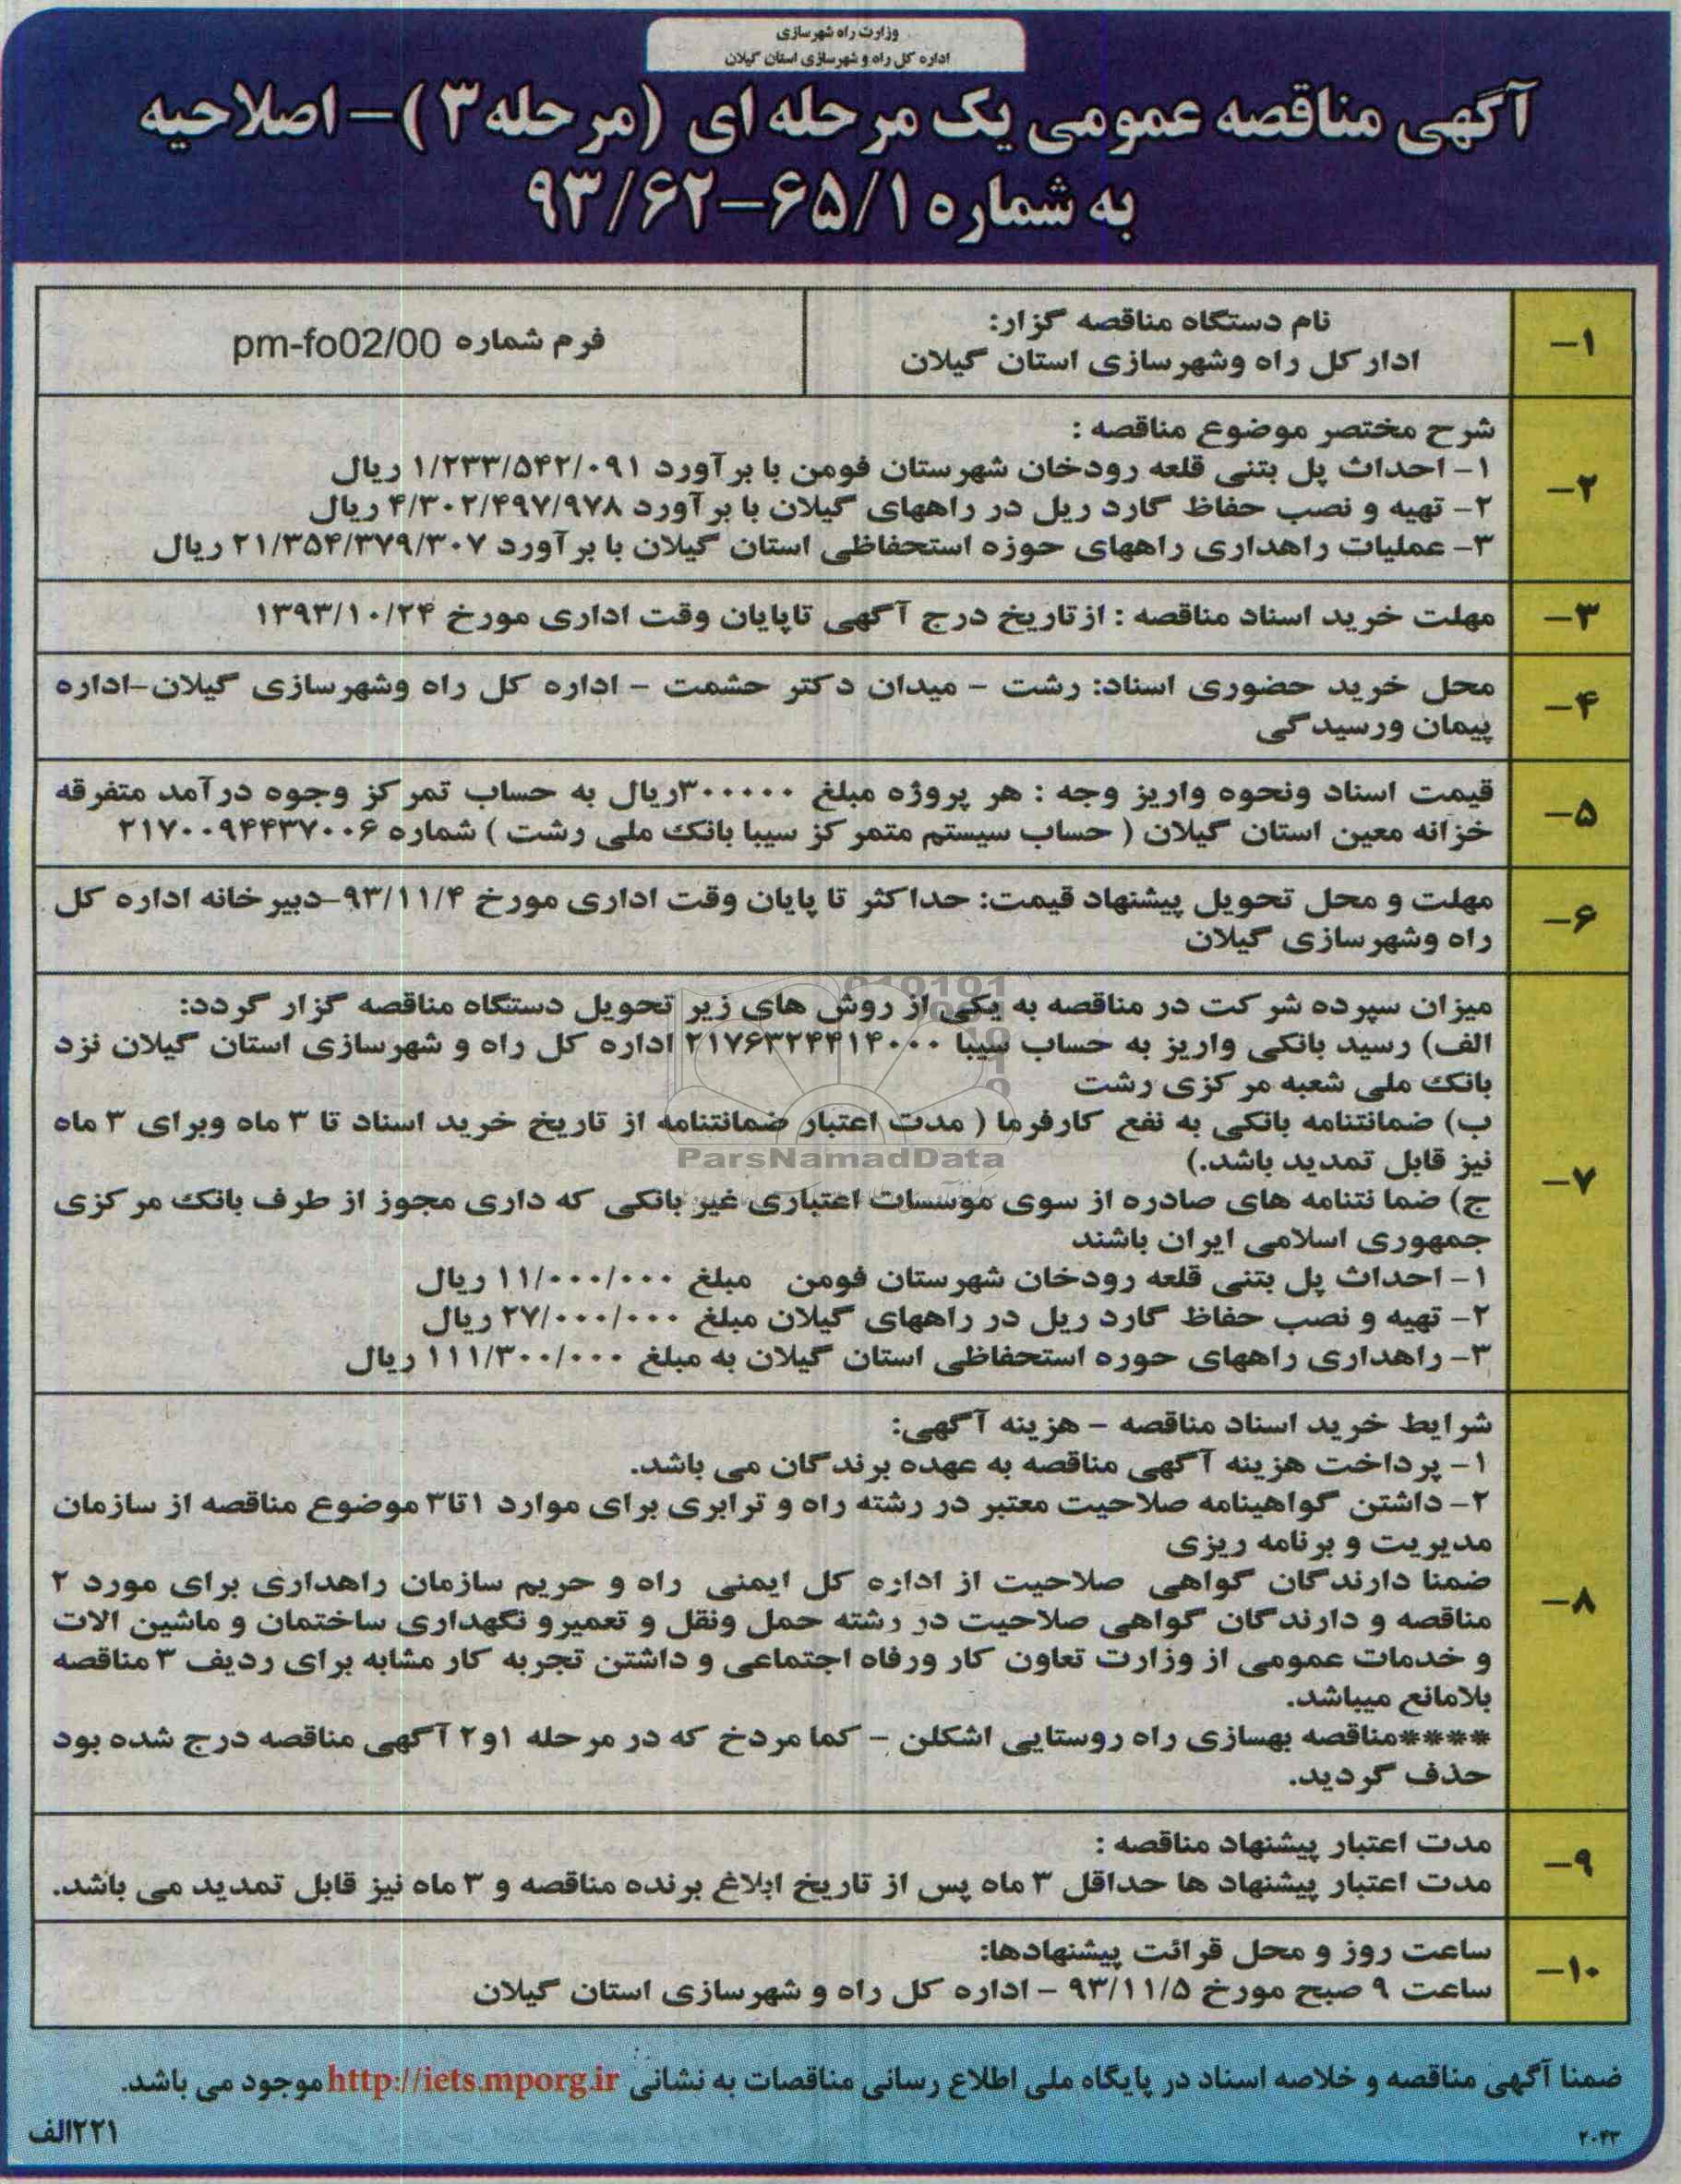 وزارت راه شهرسازی
اداره کل راه و شهرسازی استان گیلان
آگهی مناقصه عمومی یک مرحله ای (مرحله ۳) - اصلاحیه
به شماره ۶۵/۱-۹۳/۶۲
۱-
نام دستگاه مناقصه گزار:
ادار کل راه وشهرسازی استان گیلان
فرم شماره pm-fo02/00
۲-
شرح مختصر موضوع مناقصه :
۱- احداث پل بتنی قلعه رودخان شهرستان فومن با برآورد ۱/۲۳۳/۵۴۲/۰۹۱ ریال
۲- تهیه و نصب حفاظ گارد ریل در راههای گیلان با برآورد ۴/۳۰۲/۴۹۷/۹۷۸ ریال
۳- عملیات راهداری راههای حوزه استحفاظی استان گیلان با برآورد ۲۱/۳۵۴/۳۷۹/۳۰۷ ریال
۳-
مهلت خرید اسناد مناقصه : ازتاریخ درج آگهی تاپایان وقت اداری مورخ ۱۳۹۳/۱۰/۲۴
۴-
محل خرید حضوری اسناد: رشت - میدان دکتر حشمت - اداره کل راه وشهرسازی گیلان-اداره
پیمان ورسیدگی
۵-
قیمت اسناد ونحوه واریز وجه : هر پروژه مبلغ ۳۰۰۰۰۰ریال به حساب تمرکز وجوه درآمد متفرقه
خزانه معین استان گیلان ( حساب سیستم متمرکز سیبا بانک ملی رشت ) شماره ۲۱۷۰۰۹۴۴۳۷۰۰۶
۶-
مهلت و محل تحویل پیشنهاد قیمت: حداکثر تا پایان وقت اداری مورخ ۹۳/۱۱/۴-دبیرخانه اداره کل
راه وشهرسازی گیلان
۷-
میزان سپرده شرکت در مناقصه به یکی از روش های زیر تحویل دستگاه مناقصه گزار گردد:
الف) رسید بانکی واریز به حساب سیبا ۲۱۷۶۳۲۴۴۱۴۰۰۰ اداره کل راه و شهرسازی استان گیلان نزد
بانک ملی شعبه مرکزی رشت
ب) ضمانتنامه بانکی به نفع کارفرما ( مدت اعتبار ضمانتنامه از تاریخ خرید اسناد تا ۳ ماه وبرای ۳ ماه
نیز قابل تمدید باشد.)
ج) ضما نتنامه های صادره از سوی موسسات اعتباری غیر بانکی که داری مجوز از طرف بانک مرکزی
جمهوری اسلامی ایران باشند
۱- احداث پل بتنی قلعه رودخان شهرستان فومن مبلغ ۱۱/۰۰۰/۰۰۰ ریال
۲- تهیه و نصب حفاظ گارد ریل در راههای گیلان مبلغ ۲۷/۰۰۰/۰۰۰ ریال
۳- راهداری راههای حوره استحفاظی استان گیلان به مبلغ ۱۱۱/۳۰۰/۰۰۰ ریال
ParsNamadData
۸-
شرایط خرید اسناد مناقصه - هزینه آگهی:
۱- پرداخت هزینه آگهی مناقصه به عهده برندگان می باشد.
۲- داشتن گواهینامه صلاحیت معتبر در رشته راه و ترابری برای موارد ۱تا۳ موضوع مناقصه از سازمان
مدیریت و برنامه ریزی
ضمنا دارندگان گواهی صلاحیت از اداره کل ایمنی راه و حریم سازمان راهداری برای مورد ۲
مناقصه و دارندگان گواهی صلاحیت در رشته حمل ونقل و تعمیرو نگهداری ساختمان و ماشین الات
و خدمات عمومی از وزارت تعاون کار ورفاه اجتماعی و داشتن تجربه کار مشابه برای ردیف ۳ مناقصه
بلامانع میباشد.
****مناقصه بهسازی راه روستایی اشکلن - کما مردخ که در مرحله ۱و۲ آگهی مناقصه درج شده بود
حذف گردید.
۹-
مدت اعتبار پیشنهاد مناقصه :
مدت اعتبار پیشنهاد ها حداقل ۳ ماه پس از تاریخ ابلاغ برنده مناقصه و ۳ ماه نیز قابل تمدید می باشد.
۱۰-
ساعت روز و محل قرائت پیشنهادها:
ساعت ۹ صبح مورخ ۹۳/۱۱/۵ - اداره کل راه و شهرسازی استان گیلان
ضمنا آگهی مناقصه و خلاصه اسناد در پایگاه ملی اطلاع رسانی مناقصات به نشانی http://iets.mporg.ir موجود می باشد.
۲۰۴۳
۲۲۱الف